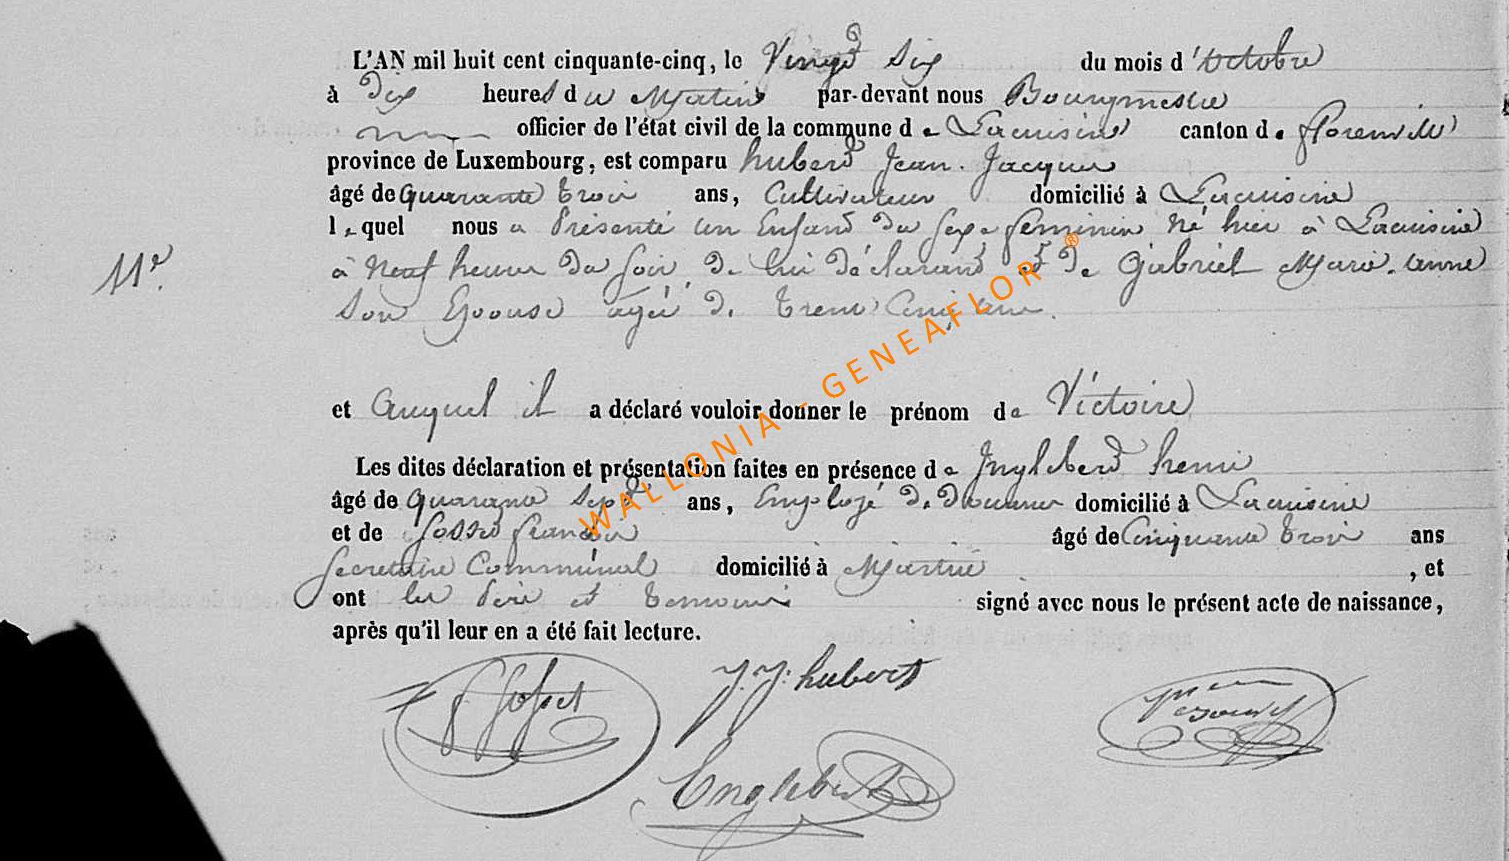 L'AN mil huit cent cinquante-cinq, le Vingt Six du mois d'octobre
à Dix heures du Matin par-devant nous Bourgmestre
officier de l'état civil de la commune de Lacuisine canton de florenville
province de Luxembourg, est comparu hubert Jean. Jacques
âgé de quarante trois ans, Cultivateur domicilié à Lacuisine
lequel nous a Présenté un Enfant du sexe feminin né hier à Lacuisine
à Neuf heures du soir, de lui déclarant et de Gabriel Marie. anne
11e.
son Epouse agée de trente Cinq ans.
et auquel il a déclaré vouloir donner le prénom de Victoire
Les dites déclaration et présentation faites en présence de Inglebert henri
âgé de quarante sept ans, Employé de douanes domicilié à Lacuisine
et de Gosset françois âgé de Cinquante trois ans
Secretaire Communal domicilié à Martué , et
ont les Père et temoins signé avec nous le présent acte de naissance,
après qu'il leur en a été fait lecture.
F Gosset J. J. hubert
Englebert
WALLONIA - GENEAFLOR ®